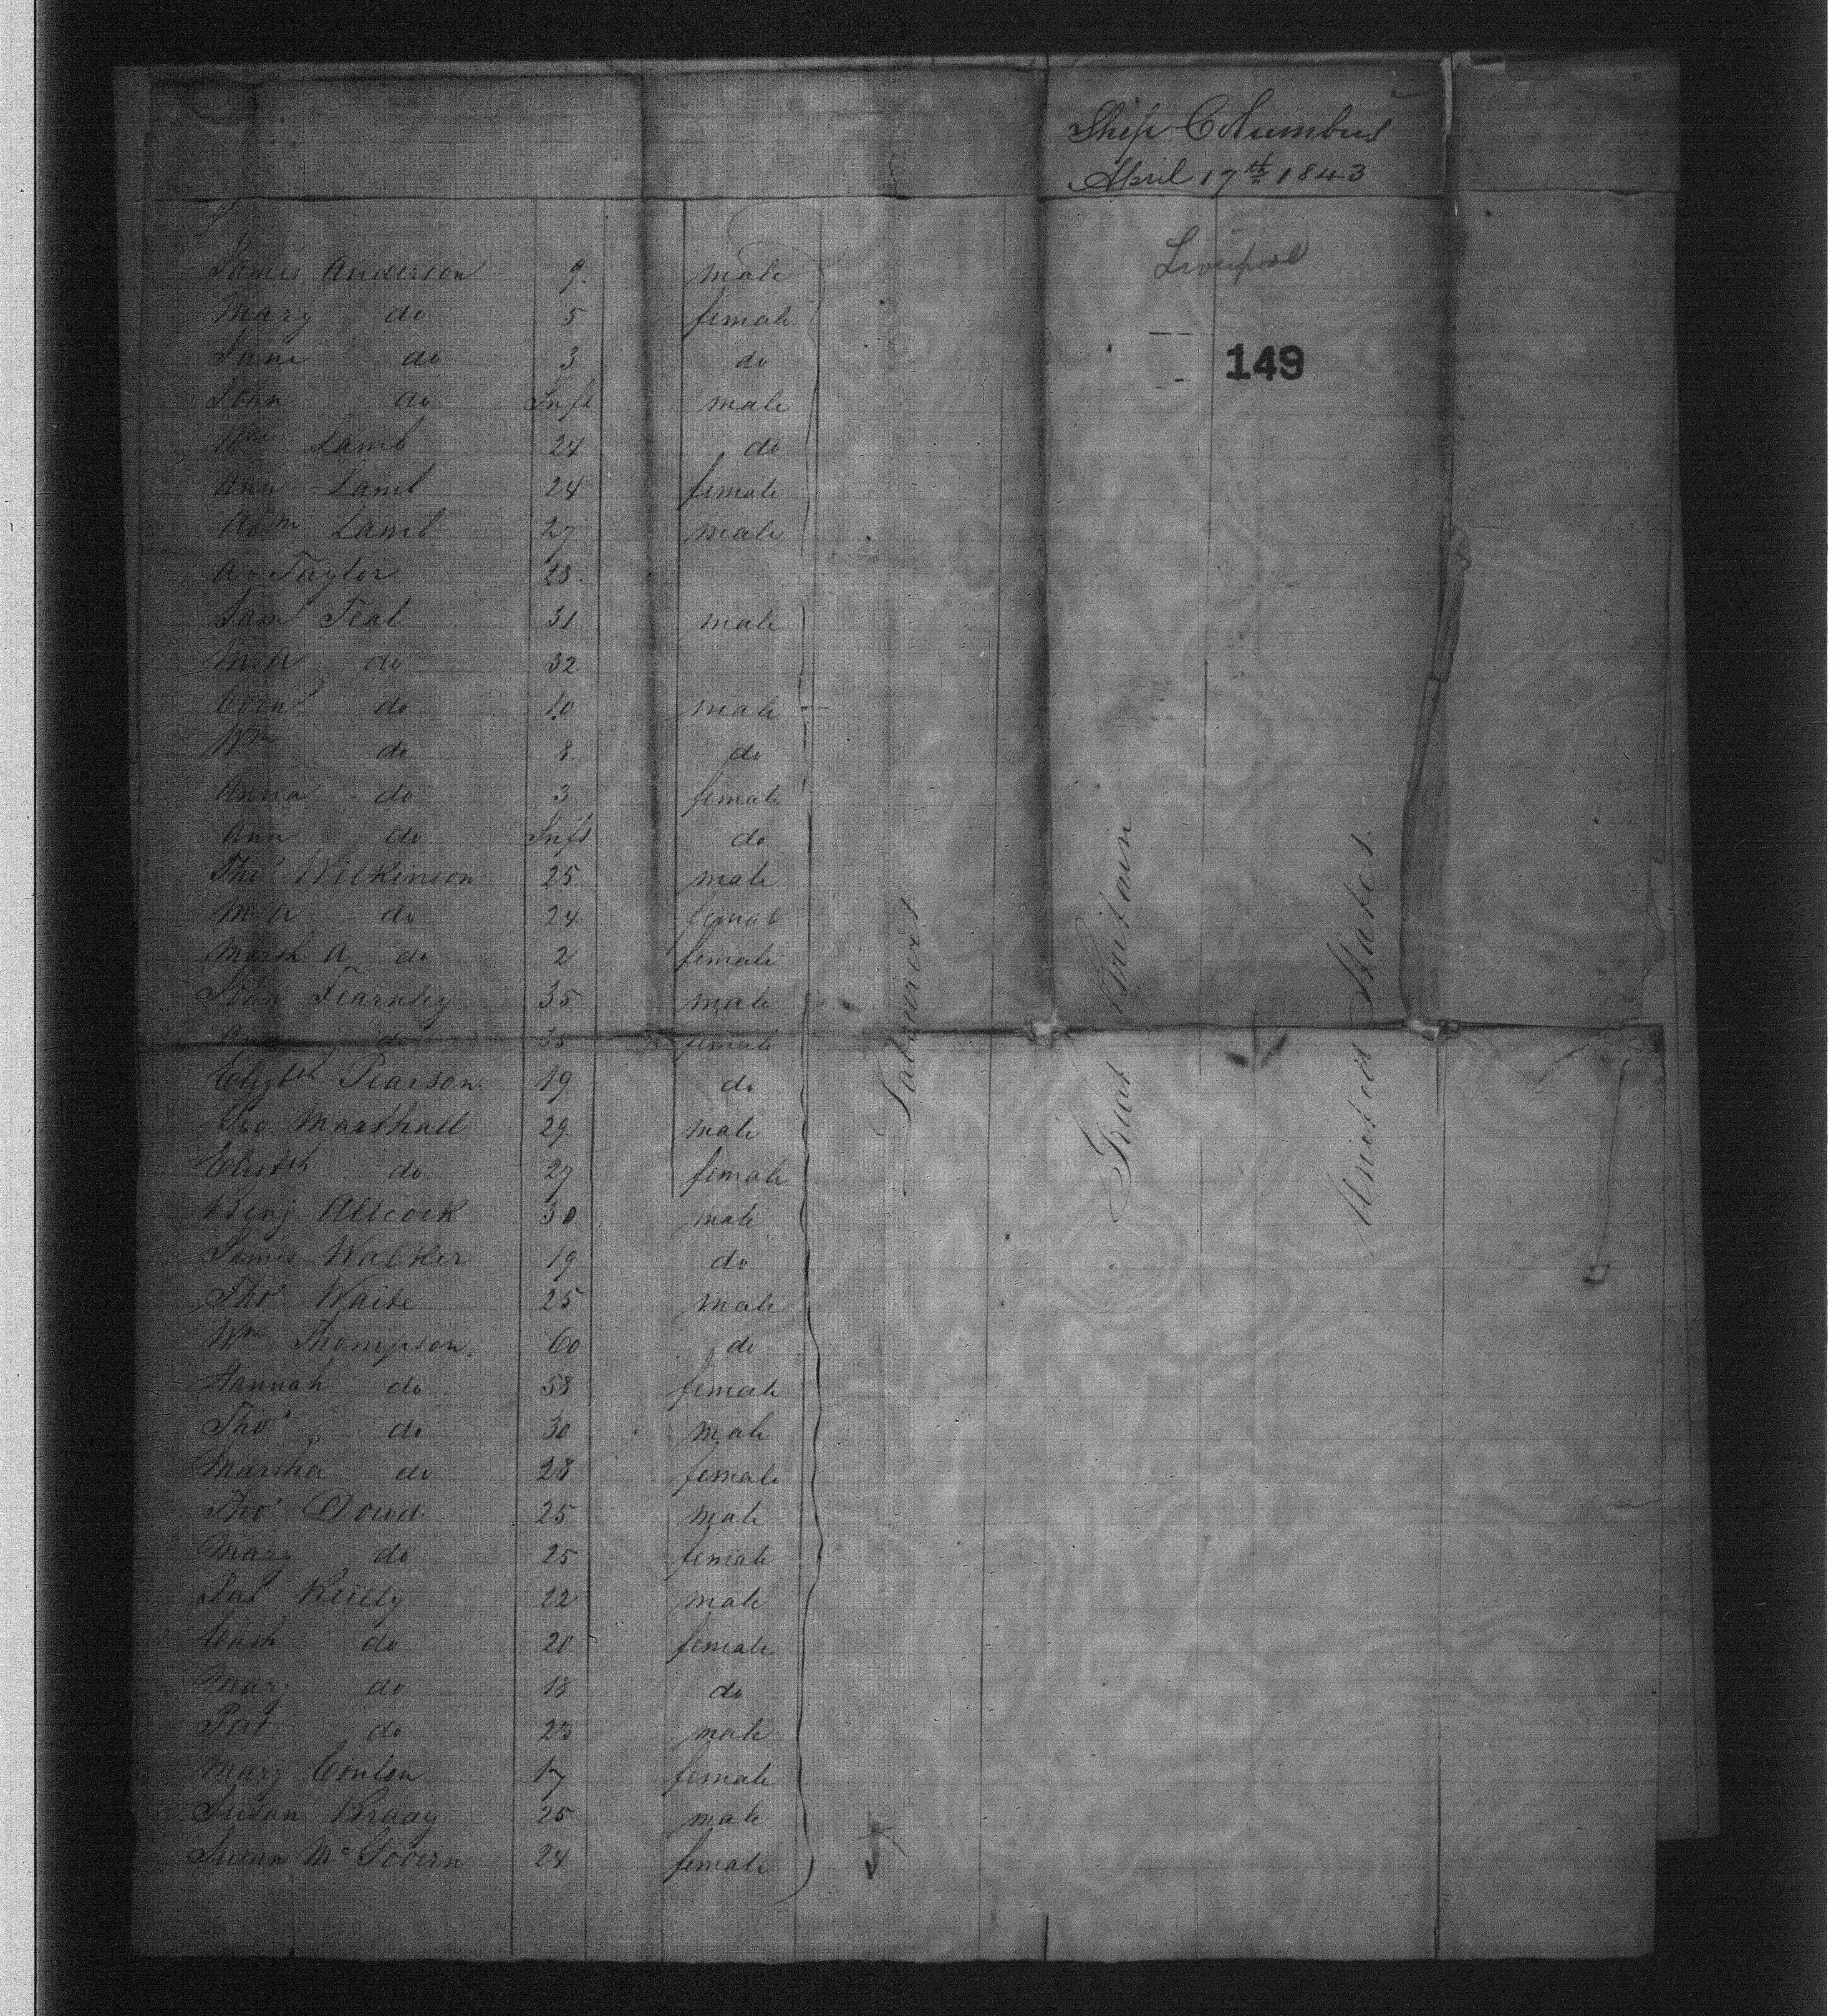 Ship Columbus
April 17th 1843
Liverpool
149
James Anderson 9. male
Mary do 5 female
Jane do 3 do
John do Inft male
Wm Lamb 24 do
Ann Lamb 24 female
Abm Lamb 27 male
A. Taylor 23.
Saml Teal 31 male
M.A do 32.
Cornl do 10 male
Wm do 8. do
Anna do 3 female
Ann do Inft do
Thos Wilkinson 25 male
M.A do 24 female
Marth. A do 2 female
John Fearnley 35 male
do 35 female
Elizbth Pearson 19 do
Geo Marshall 29. male
Elizbth do 27 female
Benj Allcock 30 male
James Walker 19 do
Thos Waite 25 male
Wm Thompson. 60 do
Hannah do 58 female
Thos do 30 male
Martha do 28 female
Thos Dowd. 25 male
Mary do 25 female
Pat Reilly 22 male
Cath do 20 female
Mary do 18 do
Pat do 23 male
Mary Conlon 17 female
Susan Braay 25 male
Susan McGovern 24 female
Labourers
Great Britain
United States.